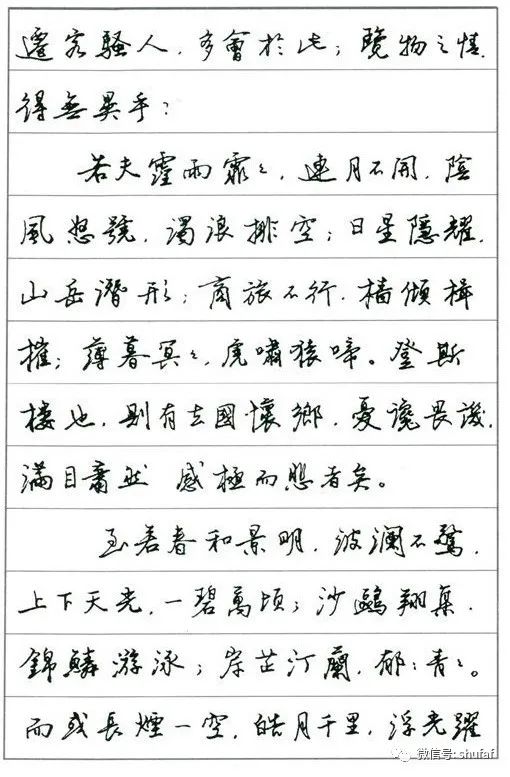 遷客騷人,多會於此;覽物之情,
得無異乎?
若夫霪雨霏〻,連月不開,陰
風怒號,濁浪排空;日星隱耀,
山岳潛形;商旅不行,檣傾楫
摧;薄暮冥〻,虎嘯猿啼。登斯
樓也,則有去國懷鄉,憂讒畏譏,
滿目蕭然 感極而悲者矣。
至若春和景明,波澜不驚,
上下天光,一碧萬頃;沙鷗翔集,
錦鱗游泳;岸芷汀蘭,郁〻青〻。
而或長煙一空,皓月千里,浮光躍
微信号: shufaf